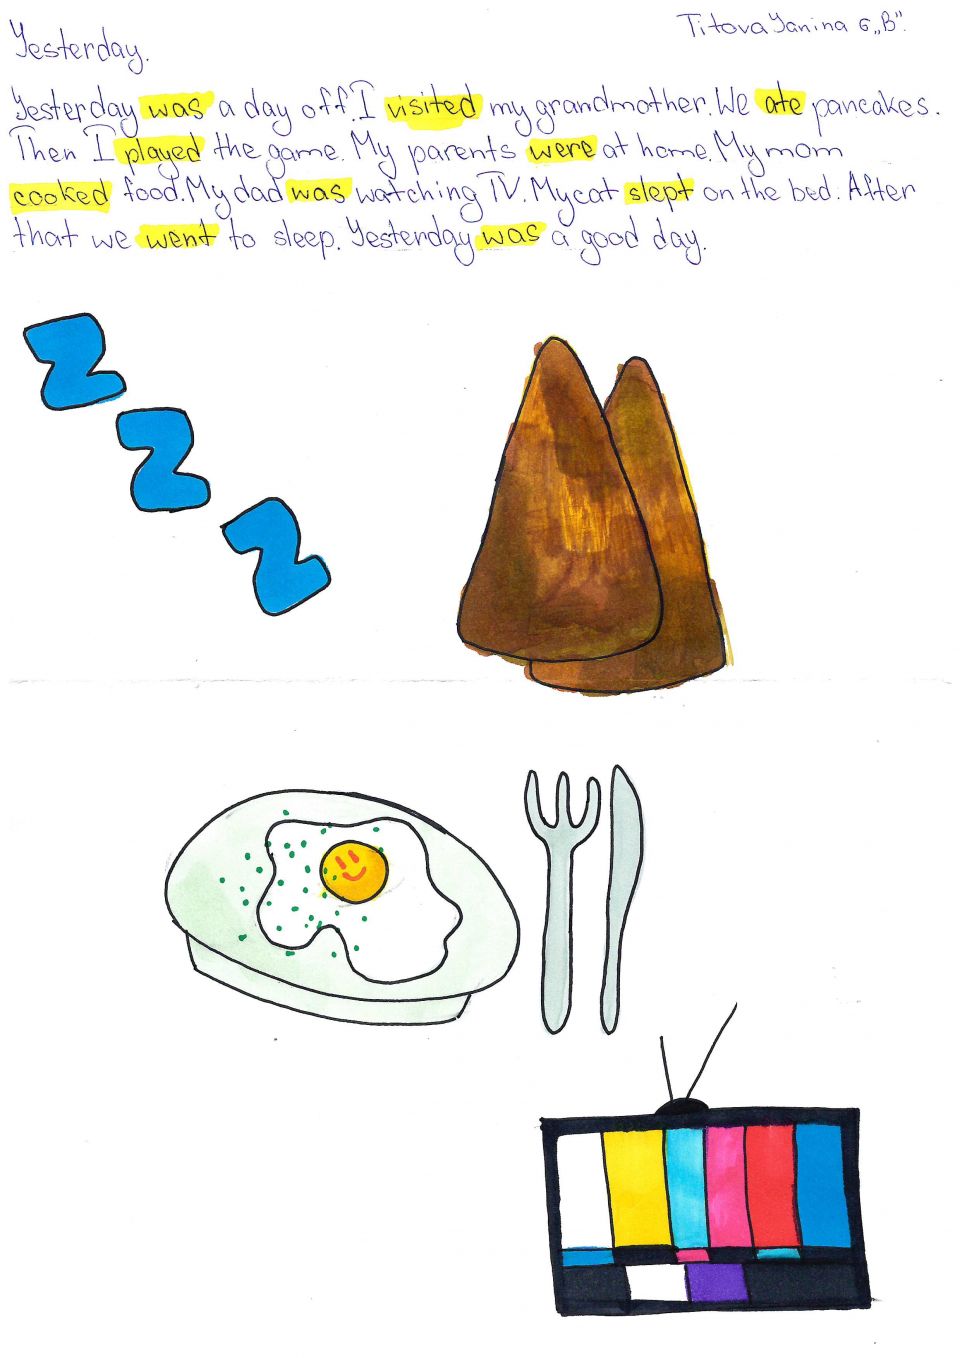 Titova Yanina 6 „B".
Yesterday.
Yesterday was a day off. I visited my grandmother. We ate pancakes.
Then I played the game. My parents were at home. My mom
cooked food. My dad was watching TV. My cat slept on the bed. After
that we went to sleep. Yesterday was a good day.
Z
Z
Z